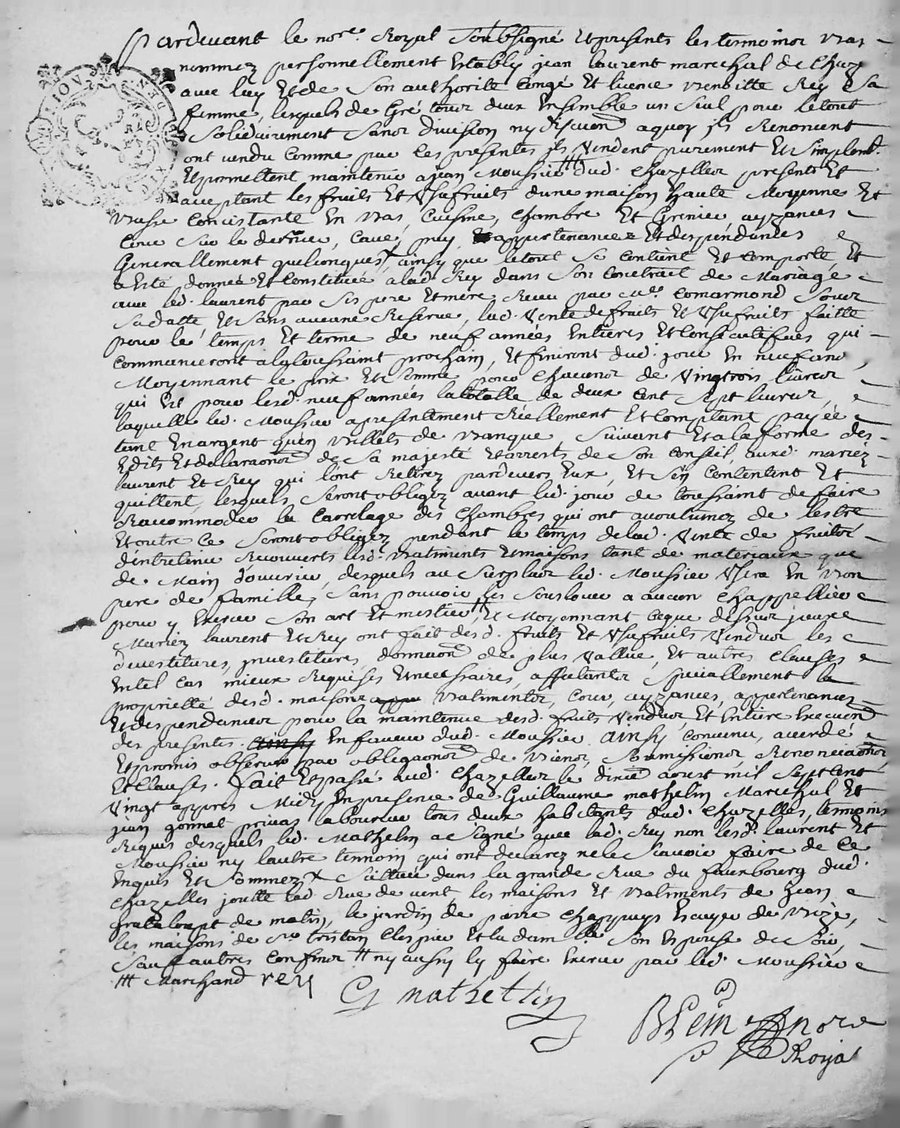 Pardevant le nore. Royal Soubsigné Et presents les temoins bas
nommez personnellement Estably jean laurent marechal de Chaz
avec luy Et de Son authorite Congé Et licence benoitte Rey Sa
femme, lesquels de Gré tour deux Ensemble un Seul pour le tout
Solidairement Sans division ny discuon a quoy ils Renoncent
ont vendu Comme par les presentes ils Vendent purement Et Simplemt.
Et promettent maintenir a jean Moussier ttt dud. Chazelles present Et
acceptant les fruits Et Usufruits dune maison haute Moyenne Et
basse Concistante En bas, Cuisine, Chambre Et Grenier, ayzances
Cour Sur le derrier, Cave, puy appartenances Et despendances
Generallement quelconques X ainsy que le tout Se Contient Et Comporte Et
a Esté donnée Et Constituée a lad. Rey dans Son Contrait de Mariage
avec led. laurent par Ses pere Et mere Receu par Me. Comarmond Sour
Sa datte, Et Sans aucune Reserve, lad. Vente de fruits Et Usufruits faitte
pour le temps Et terme de neuf années Entieres Et Consecutifves qui
Commanceront a la toussaint prochain, Et finiront dud. jour En neuf ans
Moyennant le prix Et Somme pour Chacune de Vingtrois livres
qui Est pour lesd. neuf années la totalle de deux Cent Sept livres,
laquelle led. Moussier a presentement Réellement Et Comptant payée
tant En argent quen billets de banque, Suivant Et a la forme des
Edits Et declaraons de Sa majesté Et arrests de Son Conseil, auxd. mariez
laurent Et Rey qui lont Retirez pardevers Eux, Et Sen Contentent Et
quittent, lesquels Seront obligez avant led. jour de toussaint de faire
Raccommoder le Carrelage des Chambres qui ont accoutumez de lestre
Et outre ce Seront obligez pendant le temps de lad. Vente de fruits
dentretenir Recouverts lesd. batiments Et maisons tant de materiaux que
de Main douvrier, desquels au Surplus led. Moussier Usera En bon
pere de famille, Sans pouvoir les Souslouer a aucun Chappellier
pour y Exercer Son art Et mestier tt, Et Moyennant Ceque dessus jceux
Mariez laurent Et Rey ont fait desd. fruits Et Usufruits Vendus les
divestitures, jnvestitures, donnaons de plus Vallue, Et autres Clauses
En tel Cas mieux Requises Et necessaires, affectantes Specialement la
proprieté desd. maisons batiments, Cour, ayzances, appartenances
Et despendances pour la maintenue desd. fruits Vendus Et Entiere Execuon
des presentes ainsy En faveur dud. Moussier ainsy Convenu, accordé
Et promis observer par obligaons de biens, Soumissions, Renonciaons
Et Clauses. fait Et passé aud. Chazelles le dixe. aoust mil Sept Cent
Vingt appres Midy En presence de Guillaume mathelin Marechal Et
jean gonnet privas laboureur tous deux habitants dud. Chazelles, temoins
Requis desquels led. Mathelin a Signé avec lad. Rey non lesd. laurent Et
Moussier ny lautre temoin qui ont declarez ne le Scavoir faire de Ce
Enquis Et Sommez X Scittuée dans la grande Rue du faubourg dud.
Chazelles joutte lad. Rue de vent les maisons Et batiments de jean
grataloupt de matin, le jardin de pierre Chappuys Escuyer de bize,
les maisons de Sr. tristan Clespier Et la damlle. Son Espouse de Soir,
Sauf autres Confins tt ny aussy ly faire Exercer par led. Moussier
ttt Marchand rey
G mathellin
BPein nore
Royal